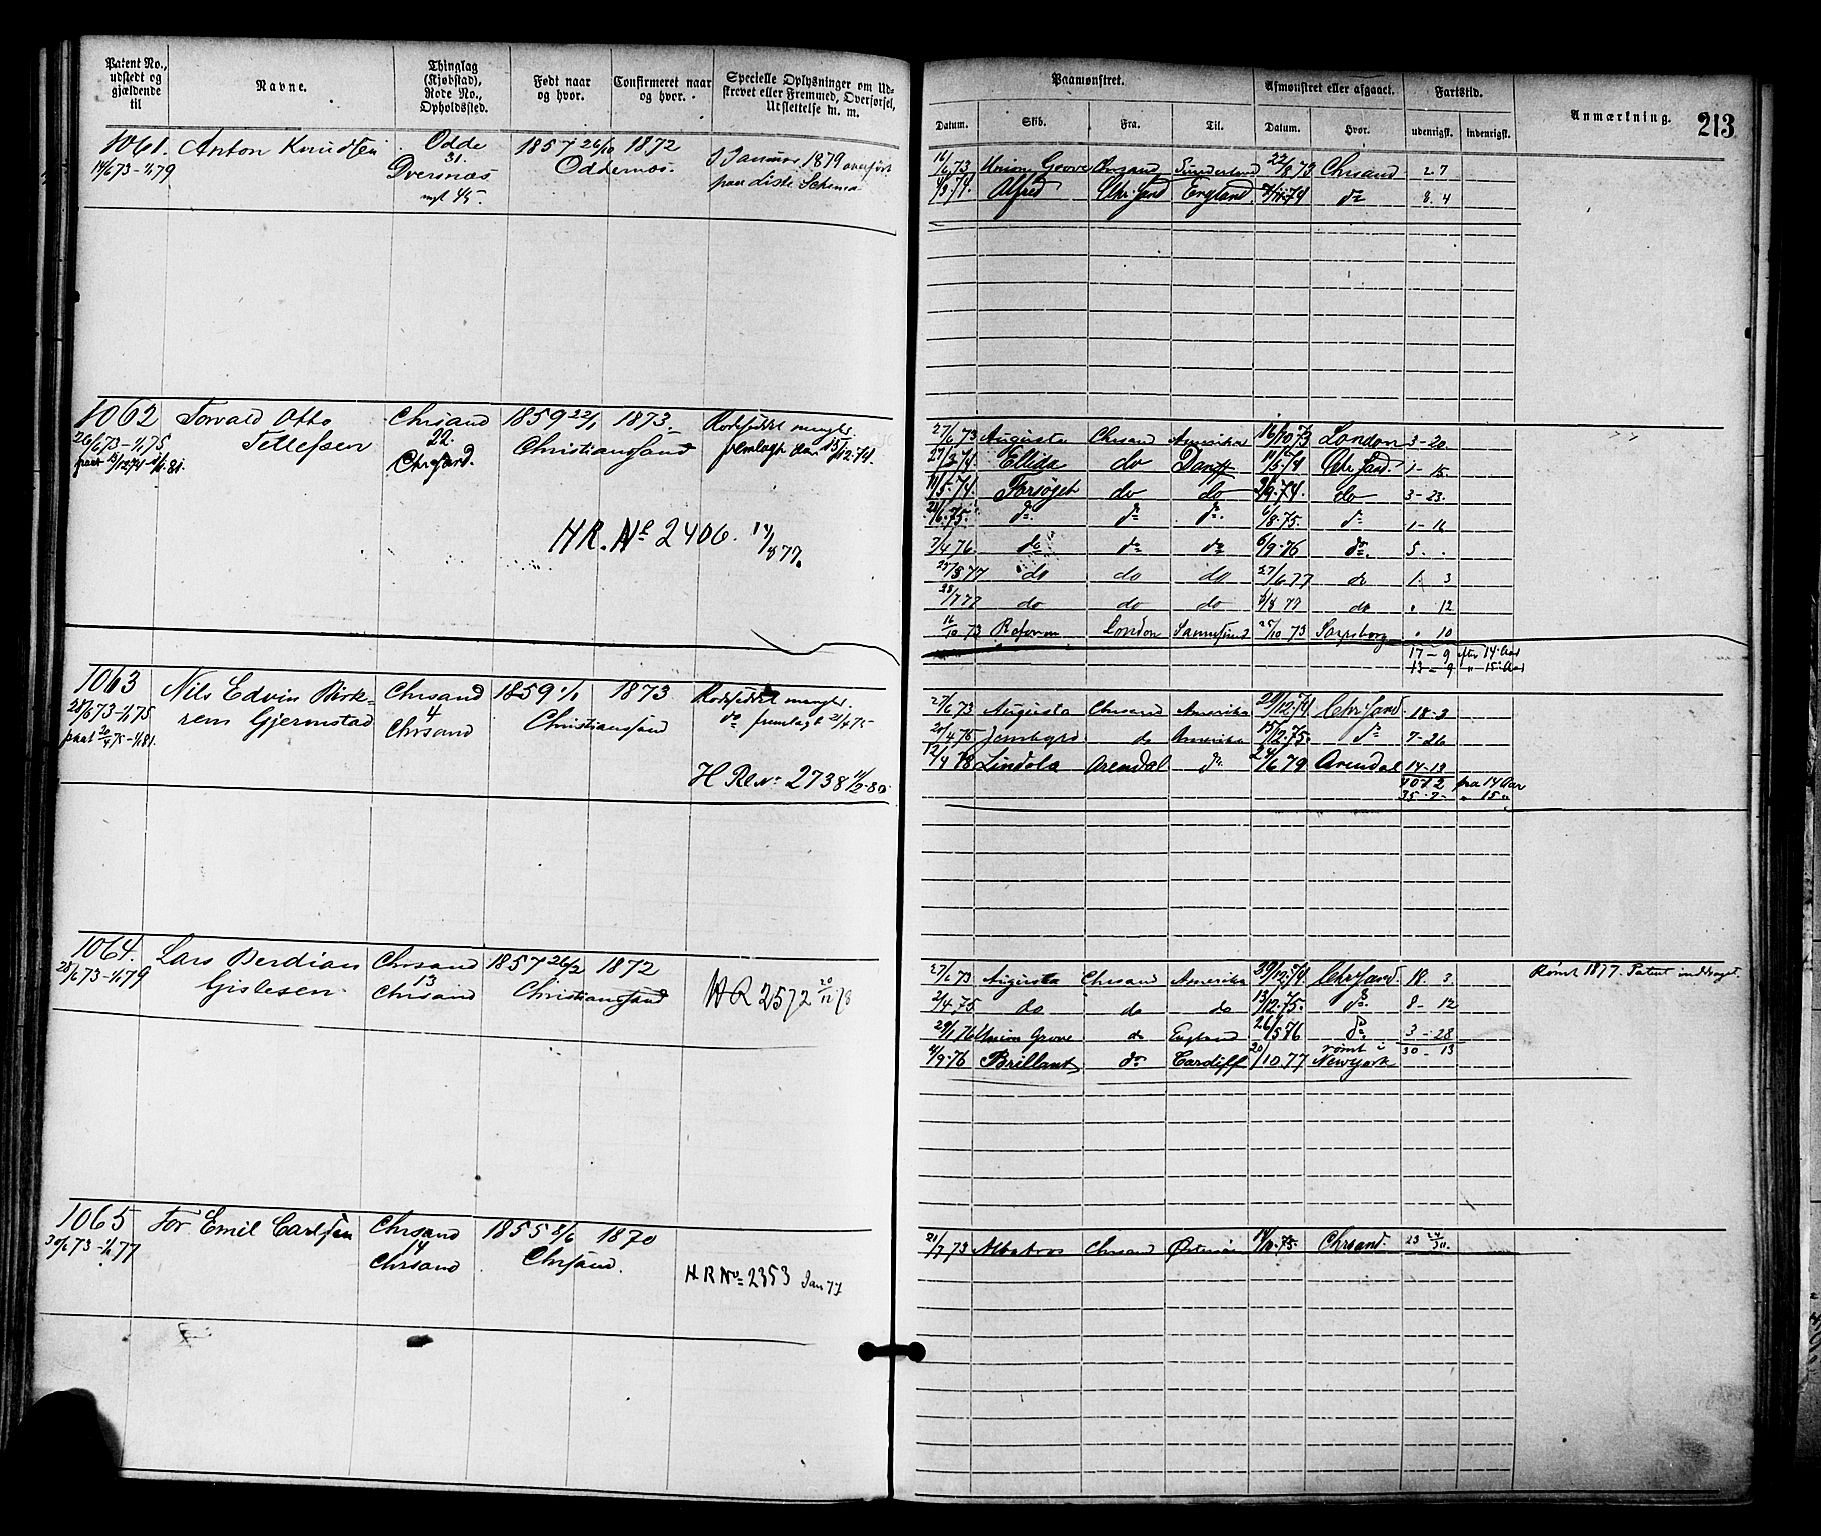 Patent No., udstedt og gjældende til
Navne.
Thinglag (Kjøbstad), Rode No., Opholdssted.
Født naar og hvor.
Confirmeret naar og hvor.
Specielle Oplysninger om Udskrevet eller Fremmed, Overførsel, Udslettelse m. m.
1061. Anton Knudsen Odde 1857 26/10 1872 I Januar 1879 overført
14/6 73-1/1 79 31. Oddernæs. paa diste Schema
Dversnæs
mgl 45.
1062 Torvald Otto Chrsand 1859 22/1 1873
26/6 73-1/1 75 Tellefsen 22. Christianssand
Chrsand.
HR. No 2406. 14/8 77.
1063 Nils Edvin Birk= Chrsand 1859 1/1 1873
28/6 73-1/1 75 rem Gjermstad 4 Christianssand
Chrsand
H R No 2738
1064. Lars Berdian Chrsand 1857 26/2 1872
28/6 73-1/1 79 Gislesen 13 Christianssand
Chrsand
HR 2572 20/11 78
1065 Tor Emil Carlsen Chrsand 1855 8/6 1870
30/6 73-1/1 77 14 Chrsand.
Chrsand
HR No 2353 Jan 77
Paamønstret.
Afmønstret eller afgaaet.
Fartstid.
Anmærkning. 213
Datum. Skib. Fra. Til. Datum. Hvor. udenrigsk. indenrigsk.
16/6 73 Union Groove Chrsand Sunderland 22/8 73 Chrsand 2 7
Alfred Chr.sand England. do 8. 4
27/6 73 Augusta Chrsand Amerika 16/10 73 London 3-20.
27/3 74. Ellida do Banff 11/5 74 Chr.sand. 1- 15.
11/5 74. Forsøget do do do 3-23.
21/6. 75. do. do do. 6/8. 75. do 1- 16
7/4 76. do do do 6/9. 76 do. 5. .
25/5 77 do do do 27/6 77 do 1. 3
28/7 77 do do do do " 12
16/10 73 Reform London Sannesund 25/10 73 Sarpsborg " 10
17-9 efter 14 Aar
13-9 " 15 Aar
27/6 73 Augusta Chrsand Amerika 29/12 74 Chr.sand. 18-3
20/4 75 do Amerika 13/12. 75. do 7-26
12/4 78 Lindola Arendal do. 24/6 79 Arendal 14-13
40-12 fra 14 Aar
35-7- " 15 "
27/6 73 Augusta Chrsand Amerika 29/12. 74 Chr.sand. 18. 3 Rømt 1877. Patent inddraget.
2/4. 75 do do do 13/12. 75. do. 8- 12
29/1 76 Union Grove do England 26/5 76 do. 3-28
rømt i 30-13
4/9. 76 Brillant do Cardiff 20/10. 77 New York
21/7 73 Albatros Chrsand Chrsand. 23